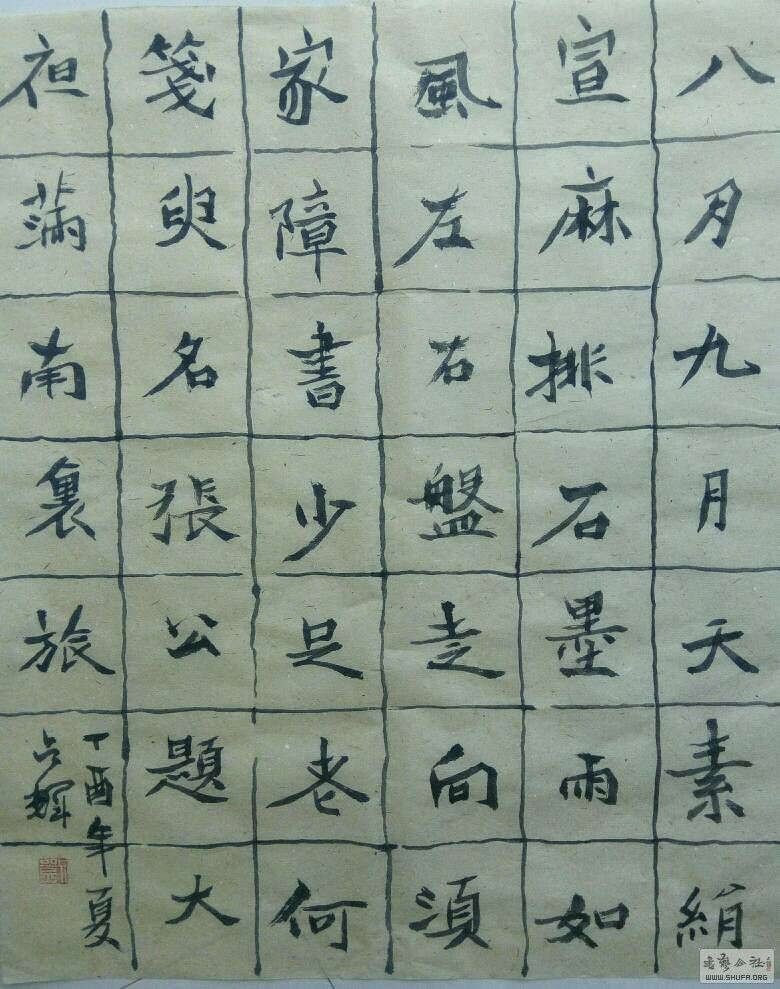 八月九月天素絹
宣麻排石墨雨如
風左右盤走向須
家障書少足老何
箋臾名張公題大
袒滿南裏旅
丁酉年夏
占輝
书艺公社
WWW.SHUFA.ORG